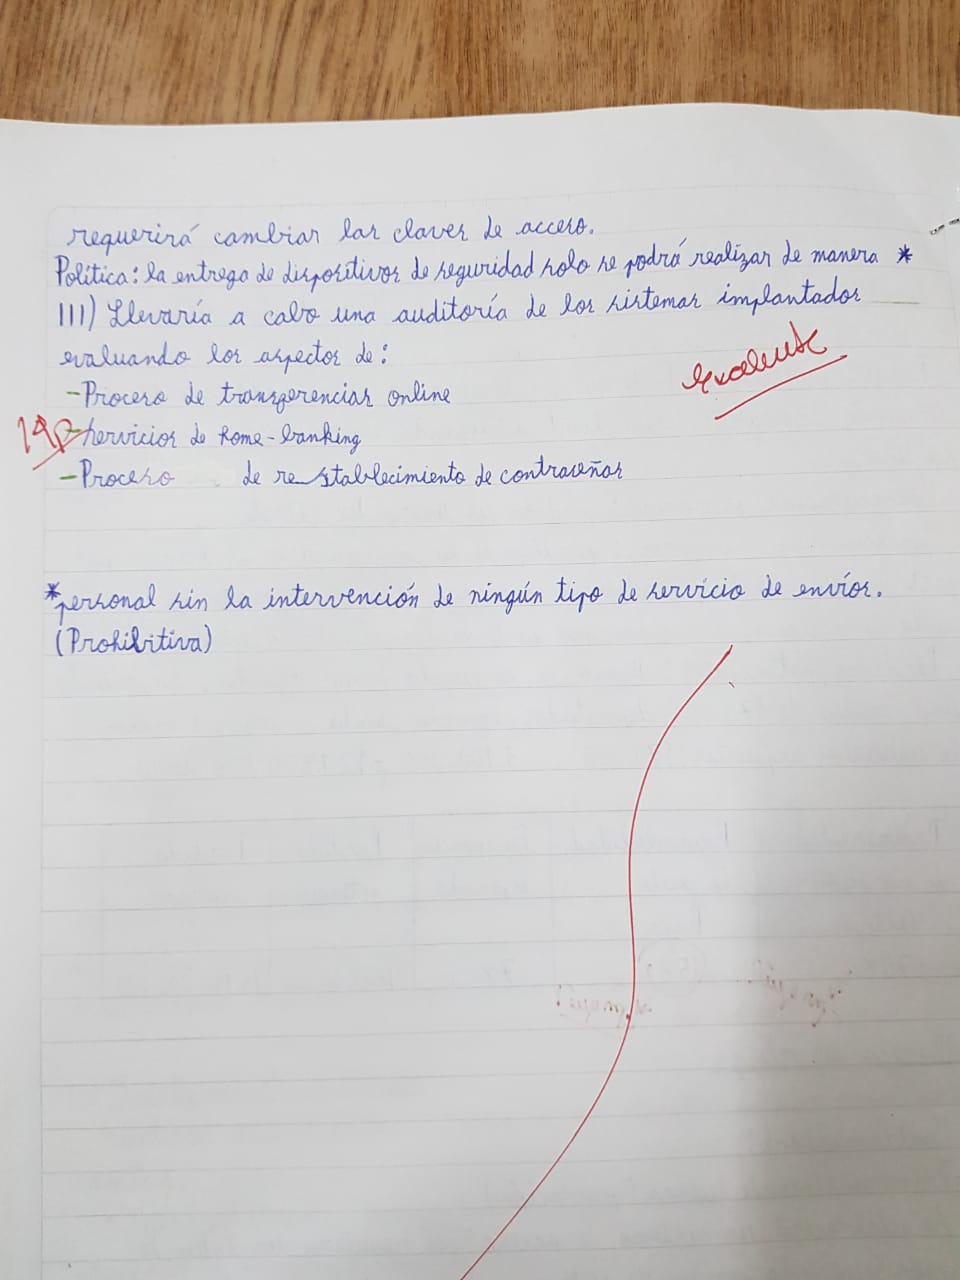 requerirá cambiar las claves de acceso.
Política: la entrega de dispositivos de seguridad solo se podrá realizar de manera *
III) Llevaría a cabo una auditoría de los sistemas implantados
evaluando los aspectos de:
excelente
-Proceso de transferencias online
-Servicios de home-banking
-Proceso de restablecimiento de contraseñas
*personal sin la intervención de ningún tipo de servicio de envíos.
(Prohibitiva)